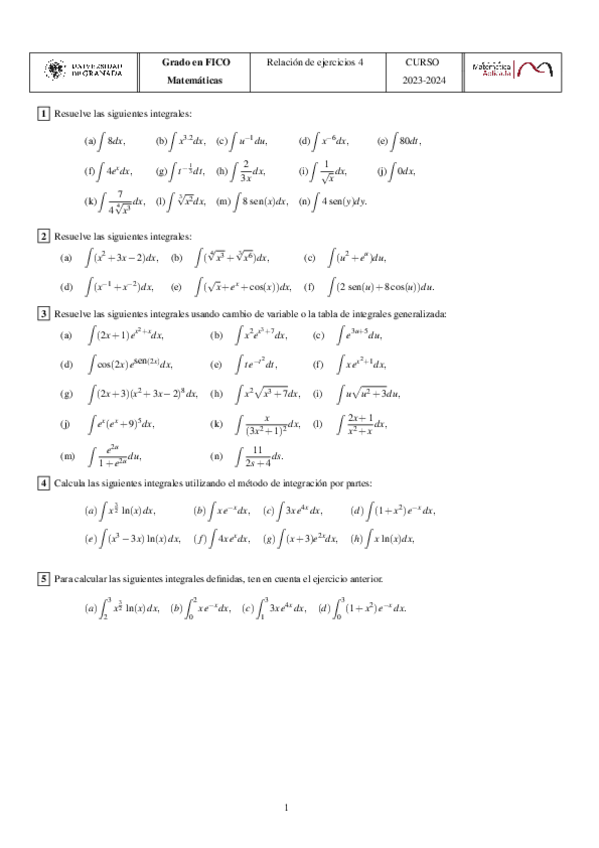 UNIVERSIDAD DE GRANADA
Grado en FICO
Matemáticas
Relación de ejercicios 4
CURSO
2023-2024
Matemática Aplicada
1 Resuelve las siguientes integrales:
(a) ∫ 8dx, (b) ∫ x^{3.2}dx, (c) ∫ u^{−1}du, (d) ∫ x^{−6}dx, (e) ∫ 80dt,
(f) ∫ 4e^x dx, (g) ∫ t^{−1/2}dt, (h) ∫ 2/(3x) dx, (i) ∫ 1/√x dx, (j) ∫ 0dx,
(k) ∫ 7/(4 ∜x³) dx, (l) ∫ ∛x² dx, (m) ∫ 8 sen(x)dx, (n) ∫ 4 sen(y)dy.
2 Resuelve las siguientes integrales:
(a) ∫ (x² + 3x − 2)dx, (b) ∫ (∜x³ + ∛x⁶)dx, (c) ∫ (u² + e^u)du,
(d) ∫ (x^{−1} + x^{−2})dx, (e) ∫ (√x + e^x + cos(x))dx, (f) ∫ (2 sen(u) + 8cos(u))du.
3 Resuelve las siguientes integrales usando cambio de variable o la tabla de integrales generalizada:
(a) ∫ (2x + 1)e^{x²+x}dx, (b) ∫ x²e^{x³+7}dx, (c) ∫ e^{3u+5}du,
(d) ∫ cos(2x)e^{sen(2x)}dx, (e) ∫ te^{−t²}dt, (f) ∫ xe^{x²+1}dx,
(g) ∫ (2x + 3)(x² + 3x − 2)⁸dx, (h) ∫ x²√(x³ + 7)dx, (i) ∫ u√(u² + 3)du,
(j) ∫ e^x(e^x + 9)⁵dx, (k) ∫ x/(3x² + 1)² dx, (l) ∫ (2x + 1)/(x² + x) dx,
(m) ∫ e^{2u}/(1 + e^{2u}) du, (n) ∫ 11/(2s + 4) ds.
4 Calcula las siguientes integrales utilizando el método de integración por partes:
(a) ∫ x^{3/2} ln(x)dx, (b) ∫ xe^{−x}dx, (c) ∫ 3xe^{4x}dx, (d) ∫ (1 + x²)e^{−x}dx,
(e) ∫ (x³ − 3x) ln(x)dx, (f) ∫ 4xe^x dx, (g) ∫ (x + 3)e^{2x}dx, (h) ∫ x ln(x)dx,
5 Para calcular las siguientes integrales definidas, ten en cuenta el ejercicio anterior.
(a) ∫₂³ x^{3/2} ln(x)dx, (b) ∫₀² xe^{−x}dx, (c) ∫₁³ 3xe^{4x}dx, (d) ∫₀³ (1 + x²)e^{−x}dx.
1